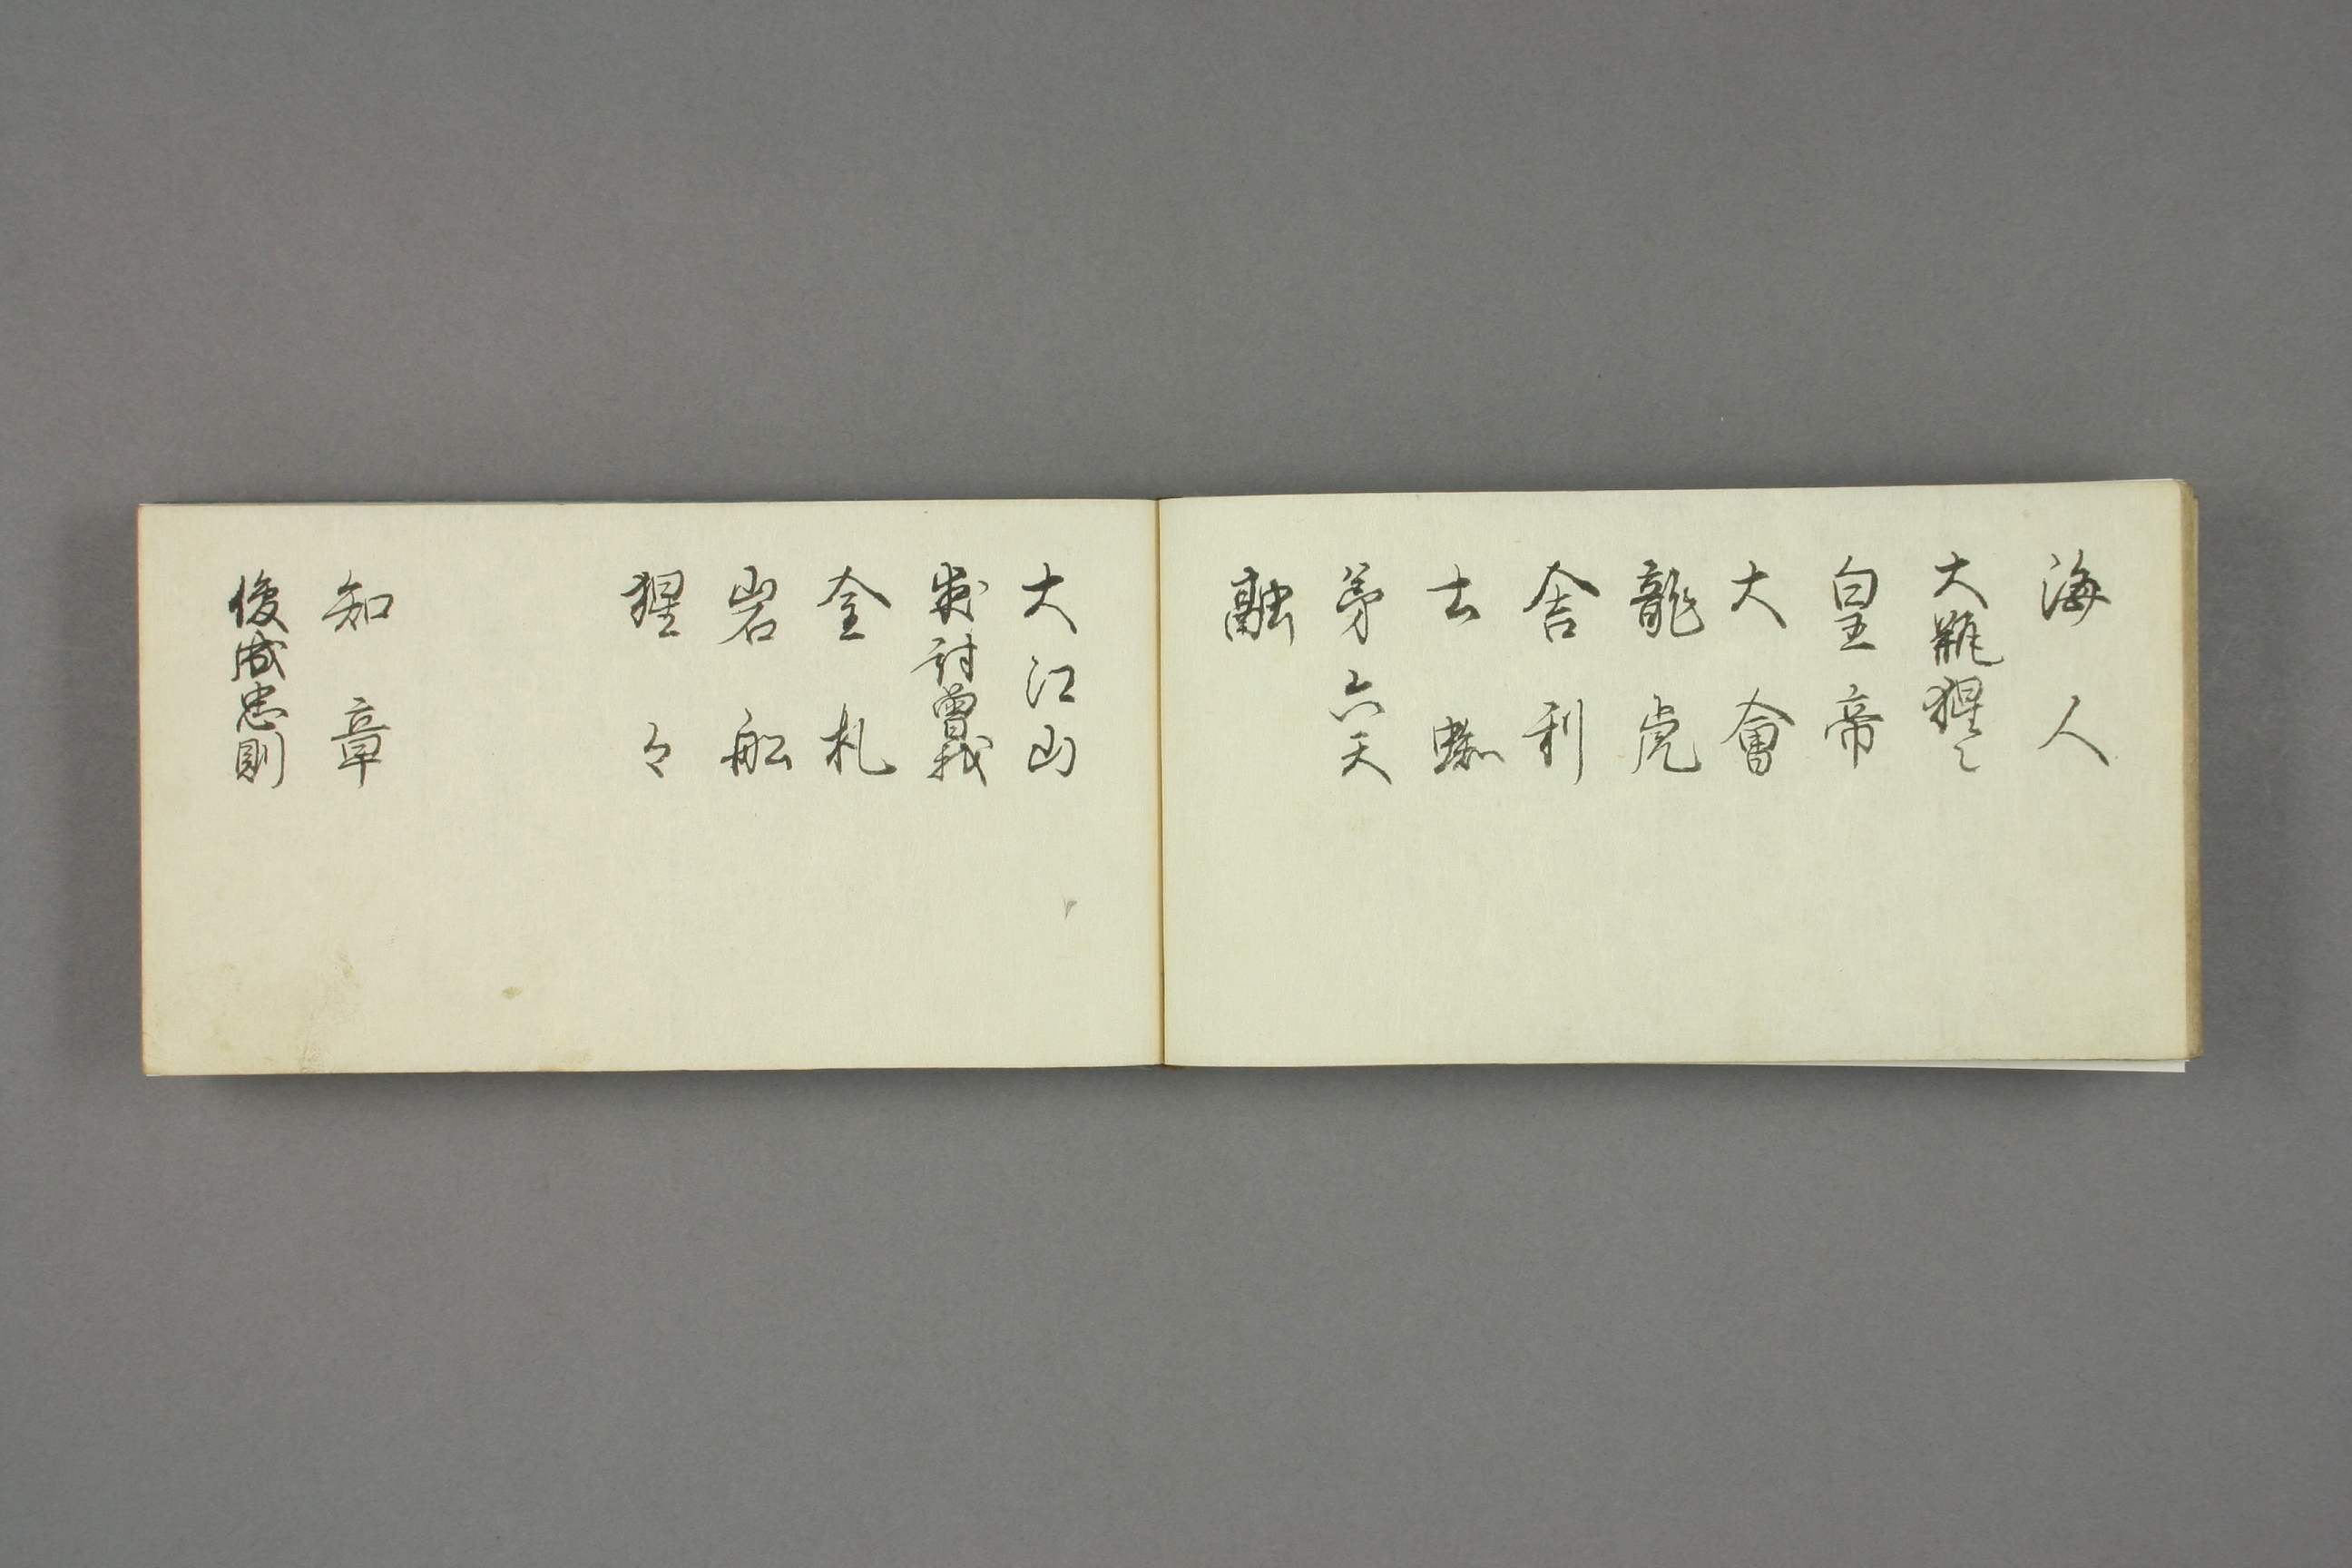 海人
大瓶猩々
皇帝
大會
龍虎
舎利
土蜘
第六天
融
大江山
夜討曽我
金札
岩船
猩々
知章
俊成忠則